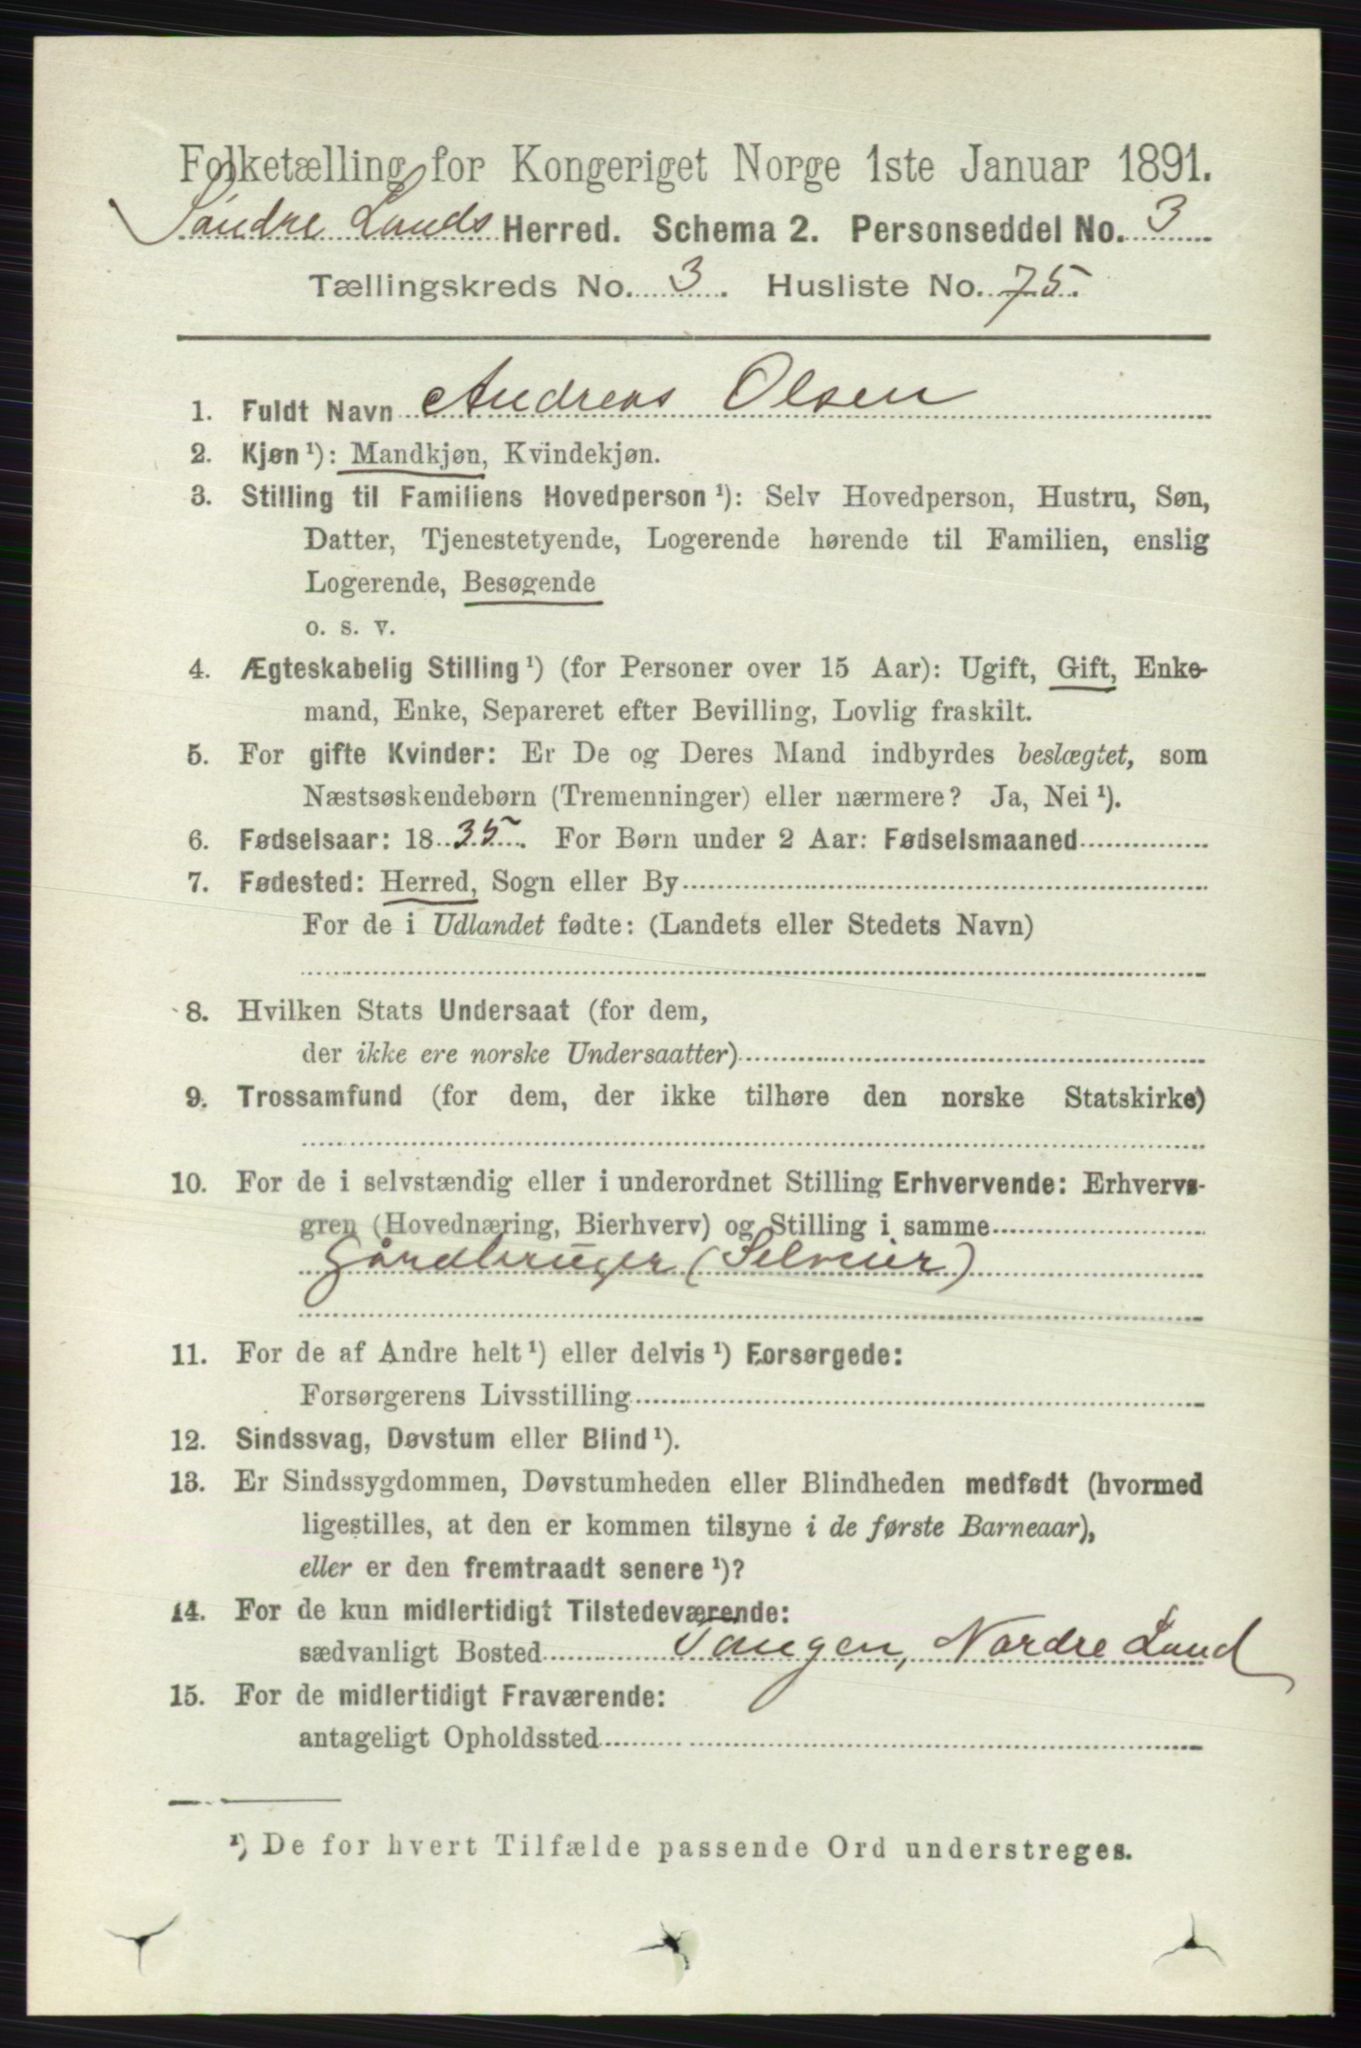 Folketælling for Kongeriget Norge 1ste Januar 1891.
Søndre Lands Herred. Schema 2. Personseddel No. 3
Tællingskreds No. 3. Husliste No. 75.
1. Fuldt Navn Andreas Olsen
2. Kjøn ¹): Mandkjøn, Kvindekjøn.
3. Stilling til Familiens Hovedperson ¹): Selv Hovedperson, Hustru, Søn,
Datter, Tjenestetyende, Logerende hørende til Familien, enslig
Logerende, Besøgende
o. s. v.
4. Ægteskabelig Stilling ¹) (for Personer over 15 Aar): Ugift, Gift, Enke-
mand, Enke, Separeret efter Bevilling, Lovlig fraskilt.
5. For gifte Kvinder: Er De og Deres Mand indbyrdes beslægtet, som
Næstsøskendebørn (Tremenninger) eller nærmere? Ja, Nei ¹).
6. Fødselsaar: 1835. For Børn under 2 Aar: Fødselsmaaned
7. Fødested: Herred, Sogn eller By
For de i Udlandet fødte: (Landets eller Stedets Navn)
8. Hvilken Stats Undersaat (for dem,
der ikke ere norske Undersaatter)
9. Trossamfund (for dem, der ikke tilhøre den norske Statskirke)
10. For de i selvstændig eller i underordnet Stilling Erhvervende: Erhvervs-
gren (Hovednæring, Bierhverv) og Stilling i samme
Gårdbruger (Selveier)
11. For de af Andre helt ¹) eller delvis ¹) Forsørgede:
Forsørgerens Livsstilling
12. Sindssvag, Døvstum eller Blind ¹).
13. Er Sindssygdommen, Døvstumheden eller Blindheden medfødt (hvormed
ligestilles, at den er kommen tilsyne i de første Barneaar),
eller er den fremtraadt senere ¹)?
14. For de kun midlertidigt Tilstedeværende:
sædvanligt Bosted Tangen, Nordre Land
15. For de midlertidigt Fraværende:
antageligt Opholdssted
¹) De for hvert Tilfælde passende Ord understreges.